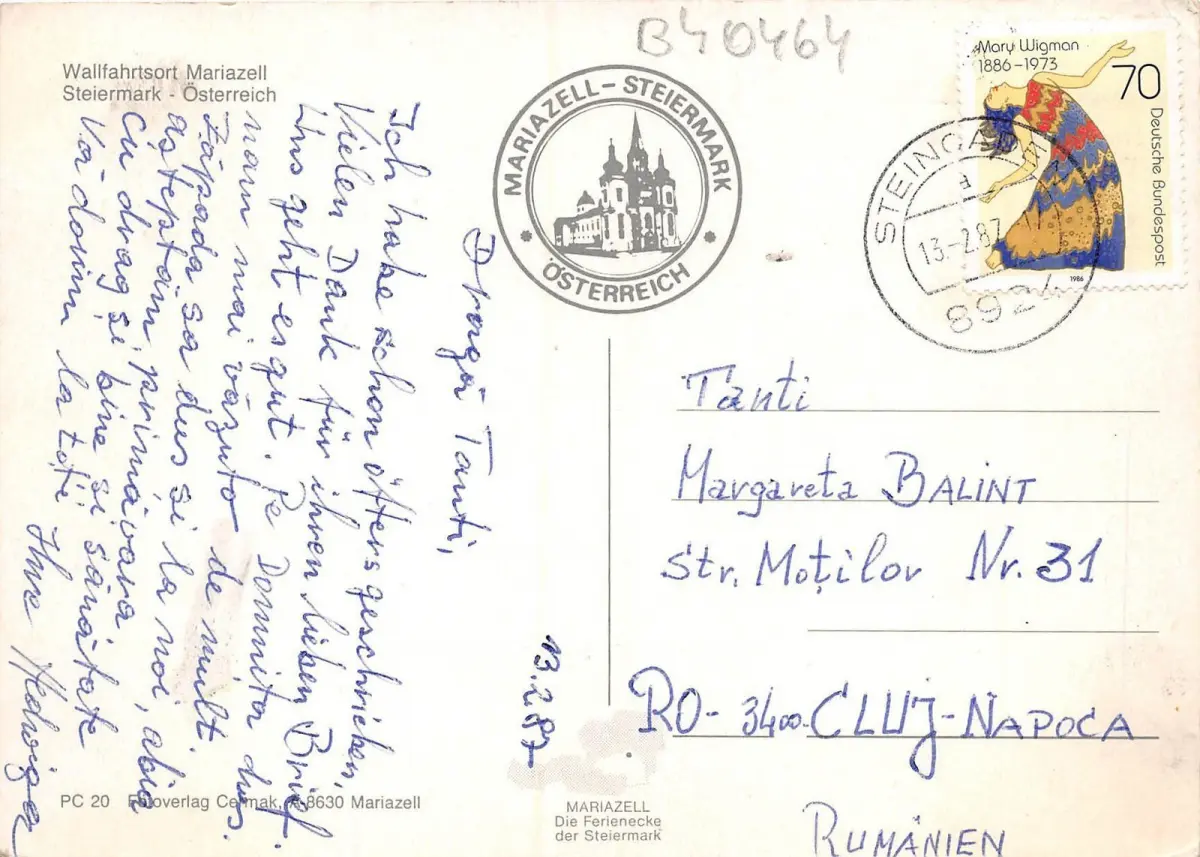 B40464
Wallfahrtsort Mariazell
Steiermark - Österreich
MARIAZELL - STEIERMARK
ÖSTERREICH
Mary Wigman
1886-1973
70
Deutsche Bundespost
1986
STEINGADEN
a
13.-2.87
8924
13.2.87
Dragă Tanti,
Ich habe schon öfters geschrieben,
Vielen Dank für ihren lieben Brief.
Uns geht es gut. Pe Domnita dus.
nam mai văzuto de mult.
Zăpada sa dus si la noi, abia
așteptăm primăvara,
Cu drag și bine si sănătate
Vă dorim la toți
Ihre Hedwiga
Tanti
Margareta BALINT
Str. Moților Nr. 31
RO- 3400- CLUJ-NAPOCA
RUMÄNIEN
PC 20 Fotoverlag Cermak, A-8630 Mariazell
MARIAZELL
Die Ferienecke
der Steiermark